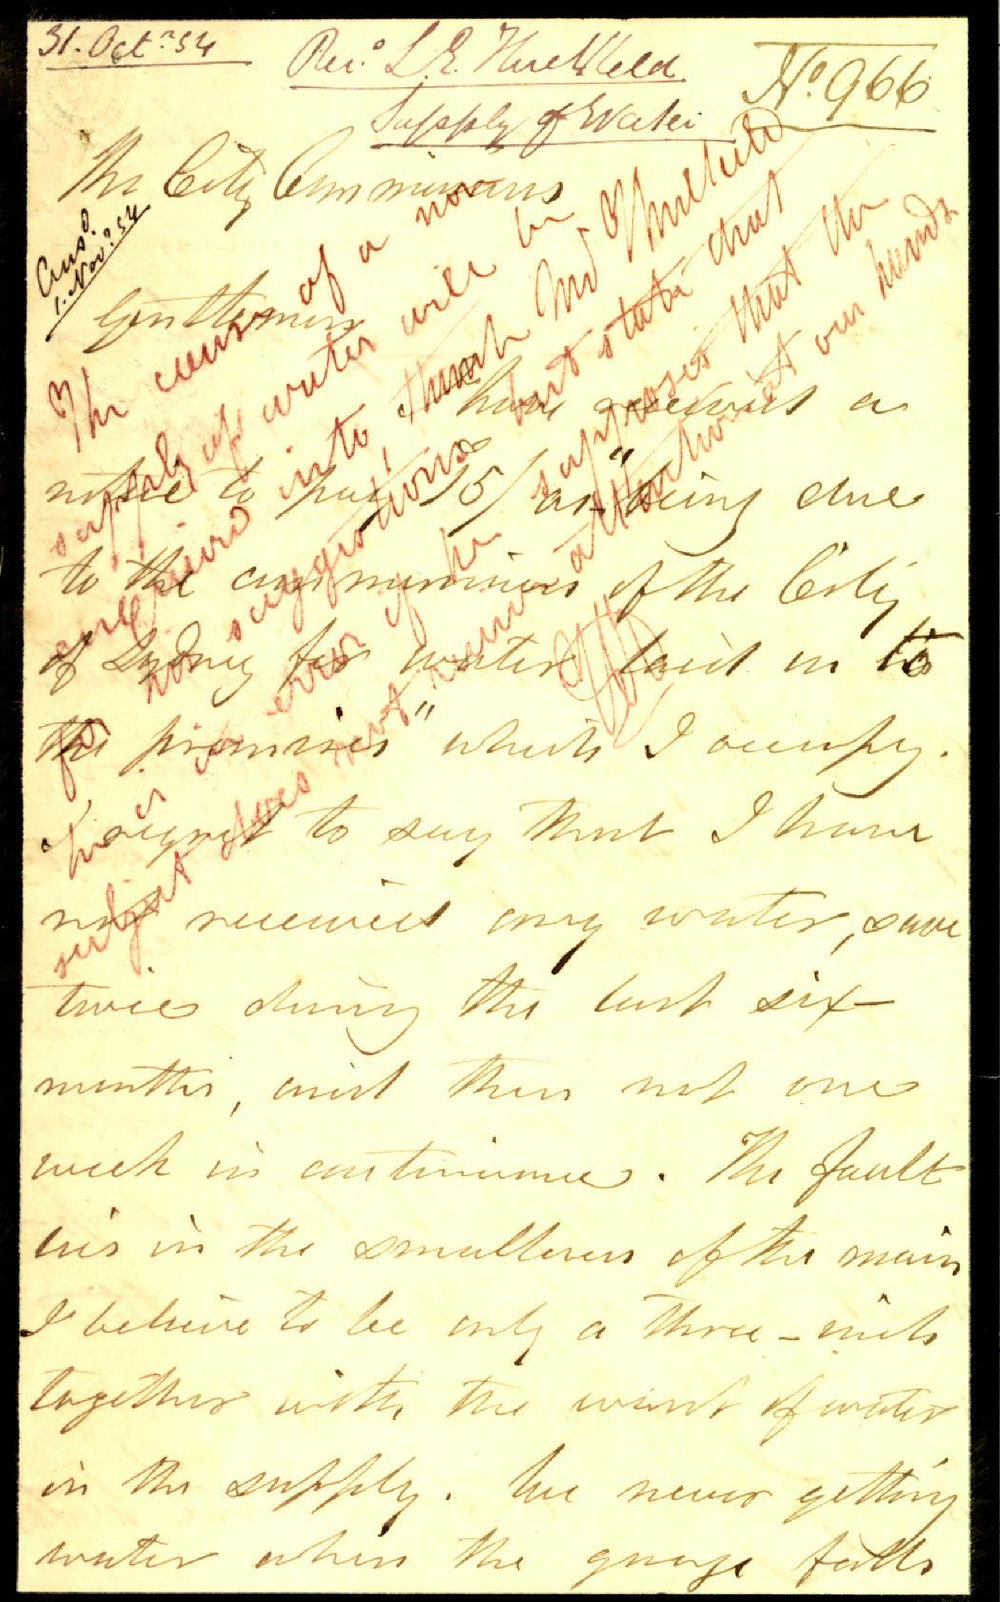 31. Octr. 54
Rev. L. E. Threlkeld
Supply of Water
No. 966
The City Commissioners
Ansd.
1. Novr. 54
Gentlemen
I have received a
notice to pay 15/ as "being due
to the commissioners of the City
of Sydney for water laid on to
the premises" which I occupy.
I regret to say that I have
not received any water, save
twice during the last six
months, and then not one
week in continuance. The fault
lies in the smallness of the main
I believe to be only a three-inch
together with the want of water
in the supply. We never getting
water when the guage falls
The cause of a non
supply of water will be
enquired into thank Mr Threlkeld
for his suggestions but state that
he is in error if he supposes that the
subject does not receive attention at our hands